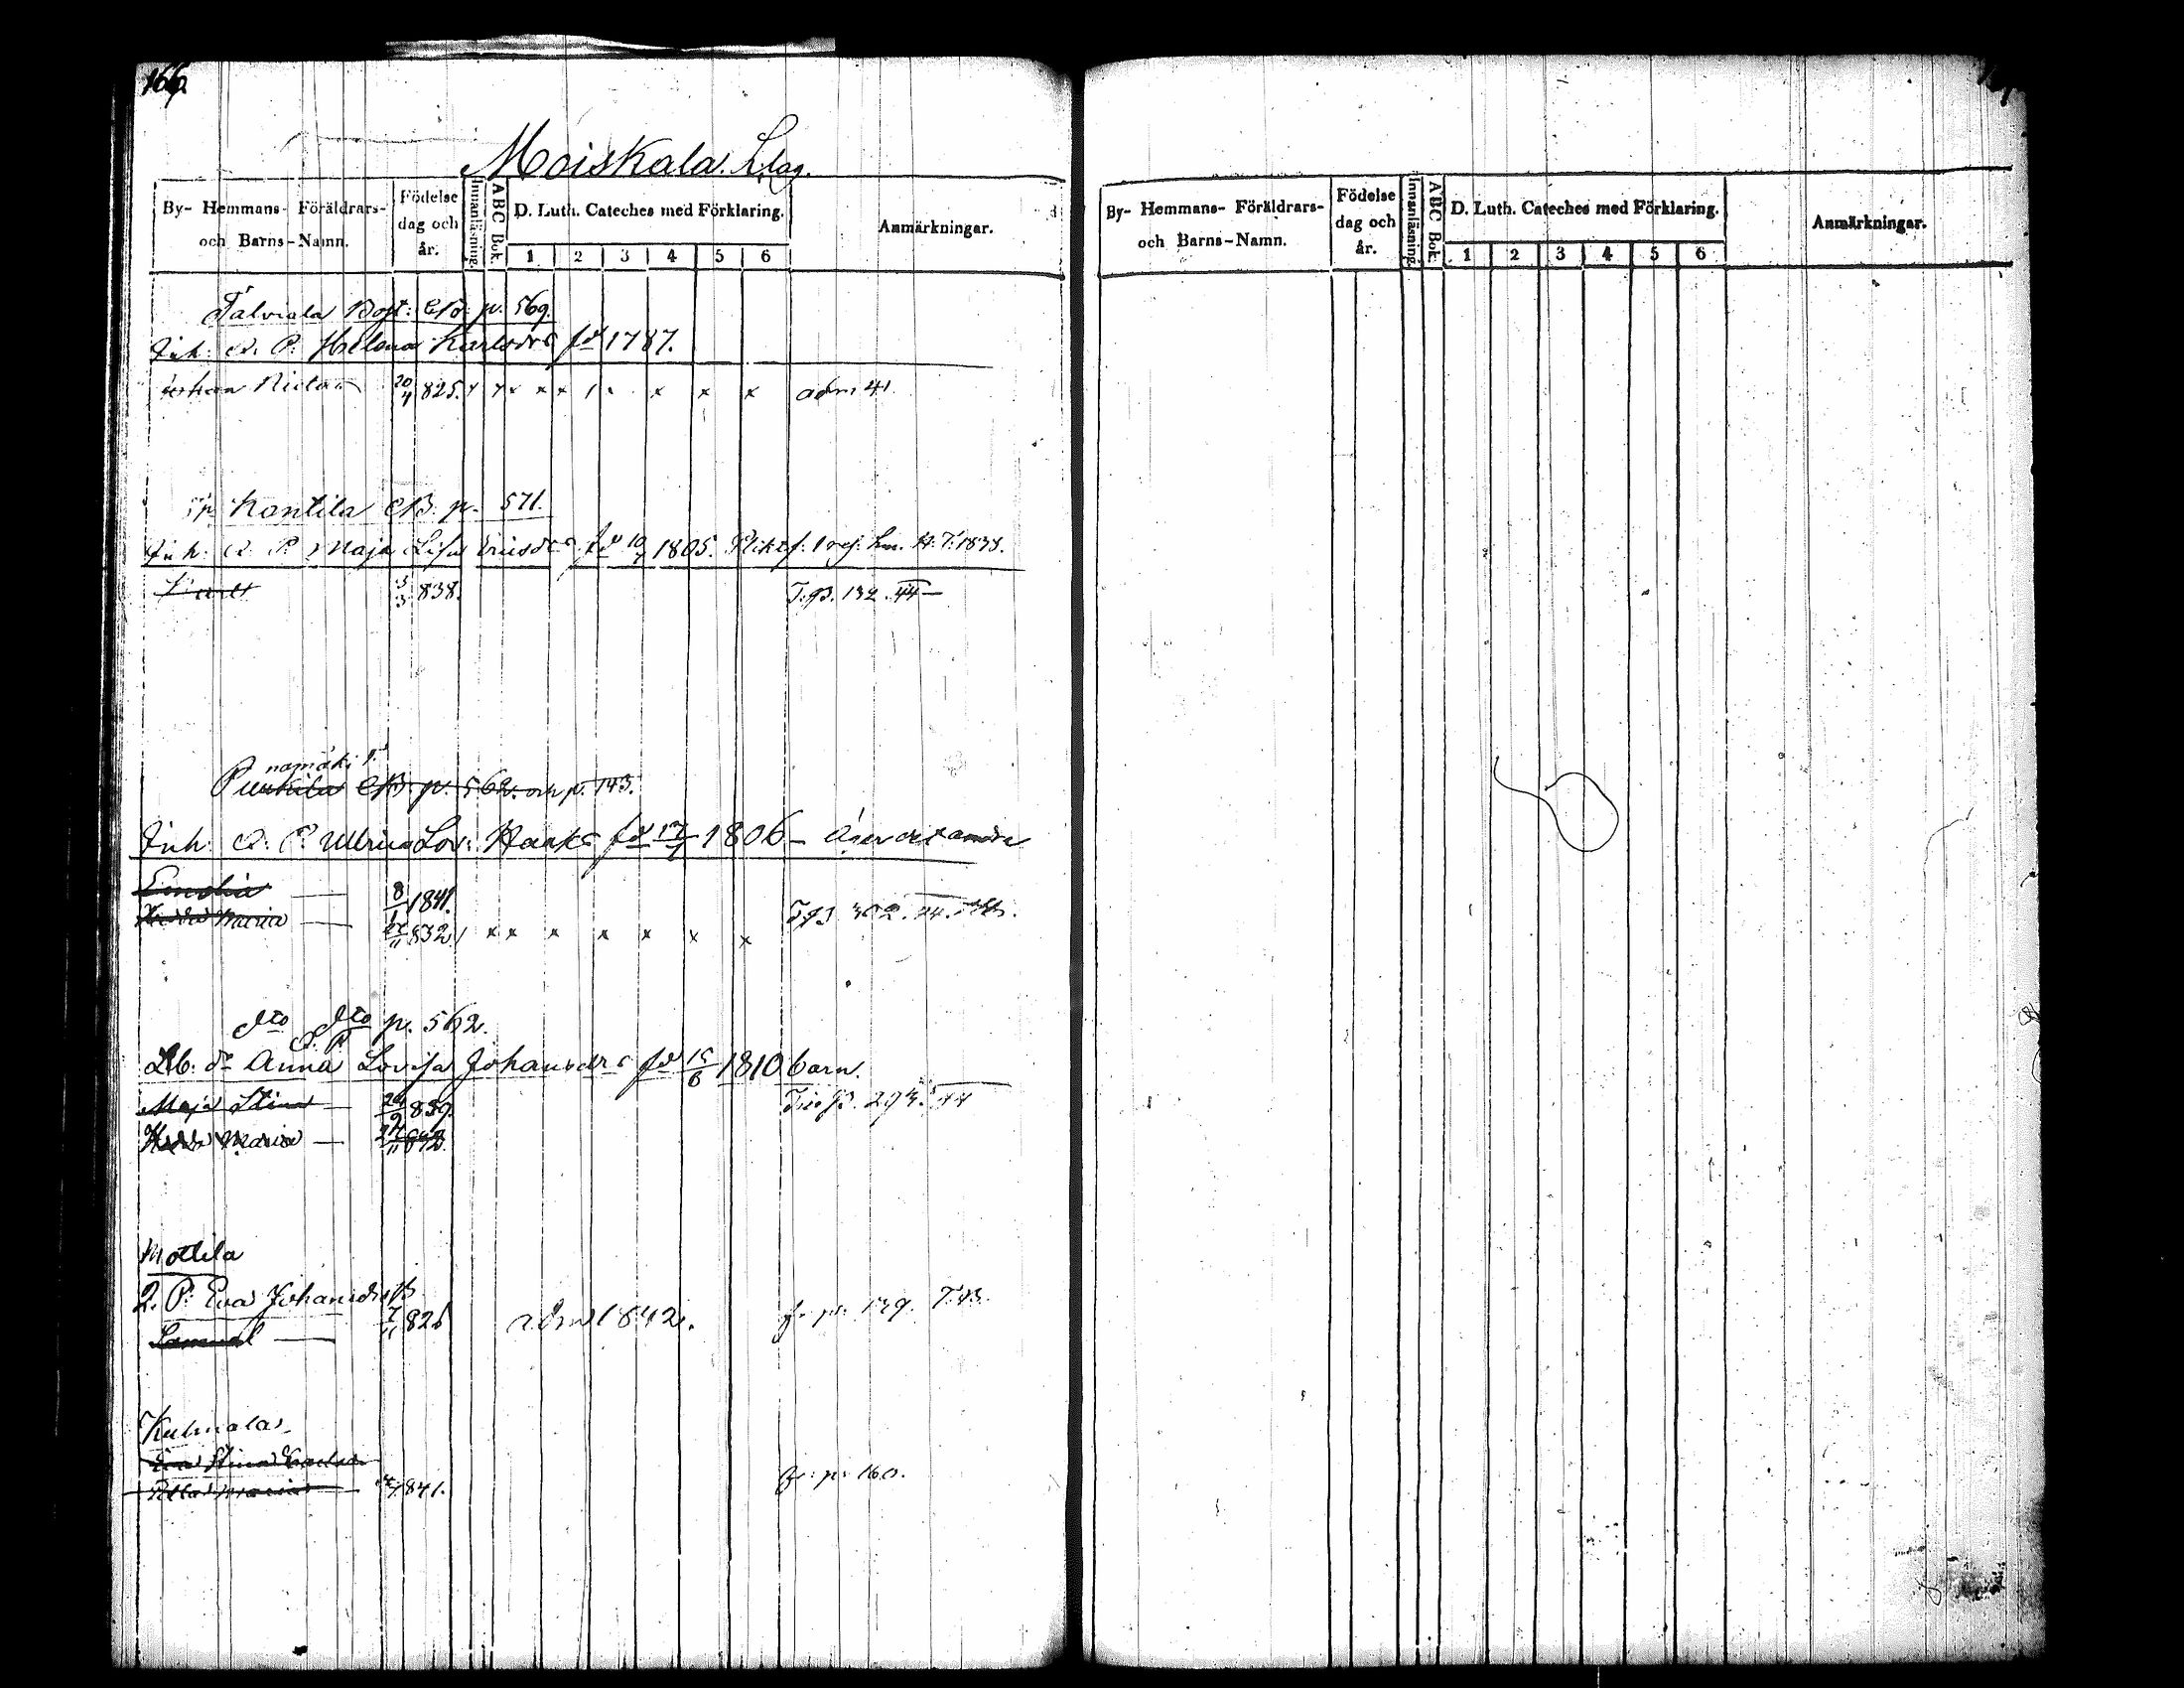 166.
Moiskala. L.lag.
By- Hemmans- Föräldrars- och Barns-Namn. Födelse dag och år. Innanläsning. ABC Bok. D. Luth. Cateches med Förklaring. 1 2 3 4 5 6 Anmärkningar.
Talviala Bost: CB: p. 569.
Inh: Q. P. Helena Karlsdr fd 1787.
Johan Niclas 20/4 825. x x x x x x x adm 41
Kontila CB. p. 571.
Inh: Q. P. Maja Lisa Ericsdr fd 10/7 1805. H. T. 1838.
3/3 838. T.B. 132. 44
namäki
Purkila CB p. 562. och p. 143.
Inh: Q. P. Ulrica Lov: fd 17/7 1806
Emelia — 8/1 1841.
Hedda Maria — 27/11 832 / x x x x x x x T.B. 302. 44.
dto dto p. 562.
Q. P.
Anna Lovisa Johansdr fd 15/6 1810 barn.
Maja Stina — 29/9 839. B. 293. 44
Hedda Maria — 27/11 842.
Mottila
2. P. Eva Johansdr
Samuel — 7/11 826 adm 1842. fr. p. 139. T. 43.
Kulmala
Eva Stina
Maria — 841. fr: p. 160.
By- Hemmans- Föräldrars- och Barns-Namn. Födelse dag och år. Innanläsning. ABC Bok. D. Luth. Cateches med Förklaring. 1 2 3 4 5 6 Anmärkningar.